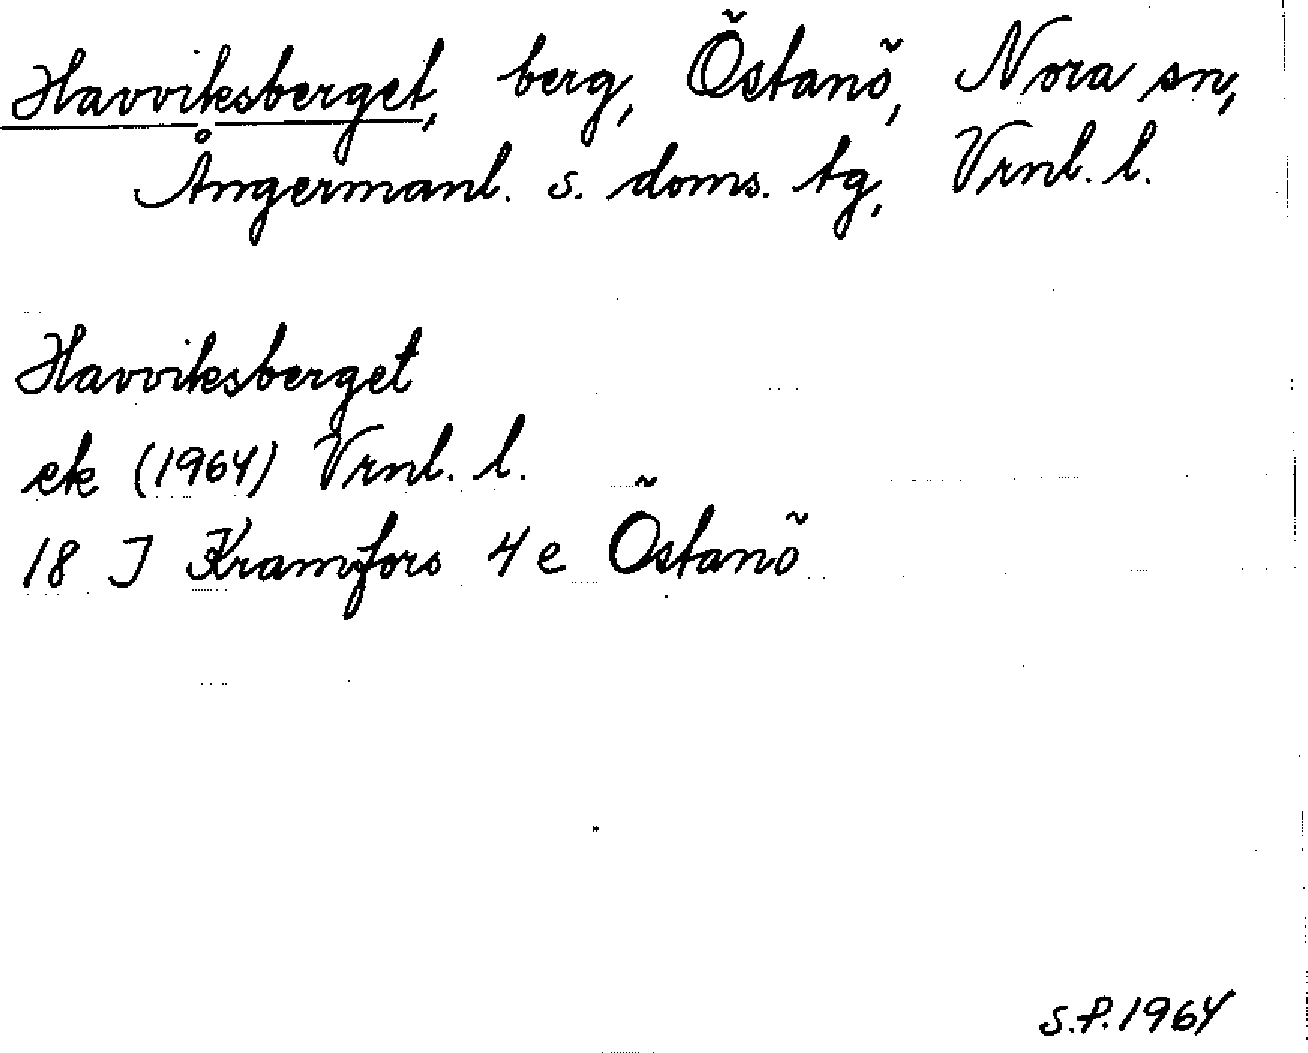 Havviksberget, berg, Östanö, Nora sn,
Ångermanl. s. doms. tg, Vrnl. l.
Havviksberget
ek (1964) Vrnl. l.
18 J Kramfors 4 e Östanö
S.P. 1964